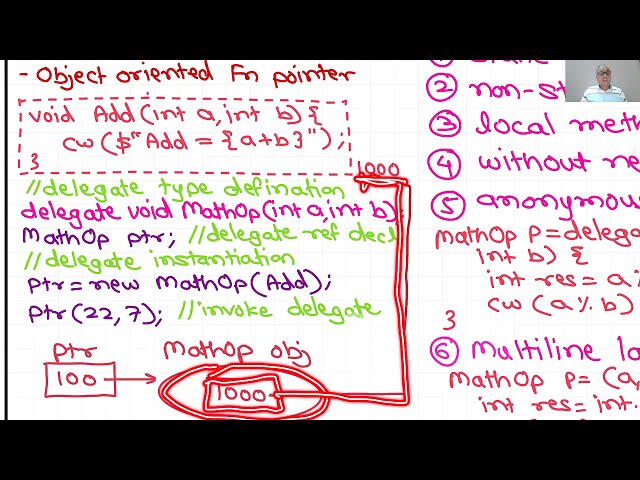 - Object oriented Fn pointer
void Add(int a, int b) {
cw ($"Add = {a+b}");
}
1000
//delegate type defination
delegate void MathOp(int a, int b)
MathOp ptr; //delegate ref decl
//delegate instantiation
ptr = new MathOp(Add);
ptr(22,7); //invoke delegate
ptr
MathOp obj
100
1000
①
② non-st
③ local meth
④ without ne
⑤ anonymous
MathOp P = delega
int b) {
int res = a%
cw (a % b)
}
⑥ Multiline la
MathOp P = (a
int res = int.